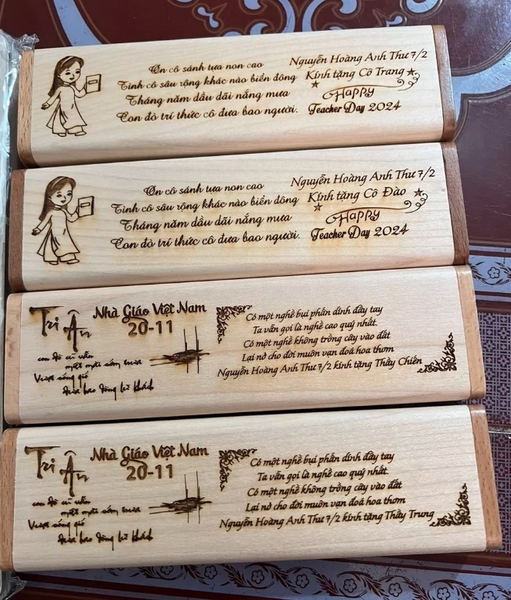 Ơn cô sánh tựa non cao
Tình cô sâu rộng khác nào biển đông
Tháng năm dầu dãi nắng mưa
Con đò trí thức cô đưa bao người.
Nguyễn Hoàng Anh Thư 7/2
Kính tặng Cô Trang
Happy
Teacher Day 2024
Ơn cô sánh tựa non cao
Tình cô sâu rộng khác nào biển đông
Tháng năm dầu dãi nắng mưa
Con đò trí thức cô đưa bao người.
Nguyễn Hoàng Anh Thư 7/2
Kính tặng Cô Đào
Happy
Teacher Day 2024
Tri Ân
Nhà Giáo Việt Nam
20-11
con đò cũ vẫn
một mái sông mưa
Vượt sóng gió
đưa bao dòng lữ khách
Có một nghề bụi phấn dính đầy tay
Ta vẫn gọi là nghề cao quý nhất.
Có một nghề không trồng cây vào đất
Lại nở cho đời muôn vạn đoá hoa thơm
Nguyễn Hoàng Anh Thư 7/2 kính tặng Thầy Chiến
Tri Ân
Nhà Giáo Việt Nam
20-11
con đò cũ vẫn
một mái sông mưa
Vượt sóng gió
đưa bao dòng lữ khách
Có một nghề bụi phấn dính đầy tay
Ta vẫn gọi là nghề cao quý nhất.
Có một nghề không trồng cây vào đất
Lại nở cho đời muôn vạn đoá hoa thơm
Nguyễn Hoàng Anh Thư 7/2 kính tặng Thầy Trung